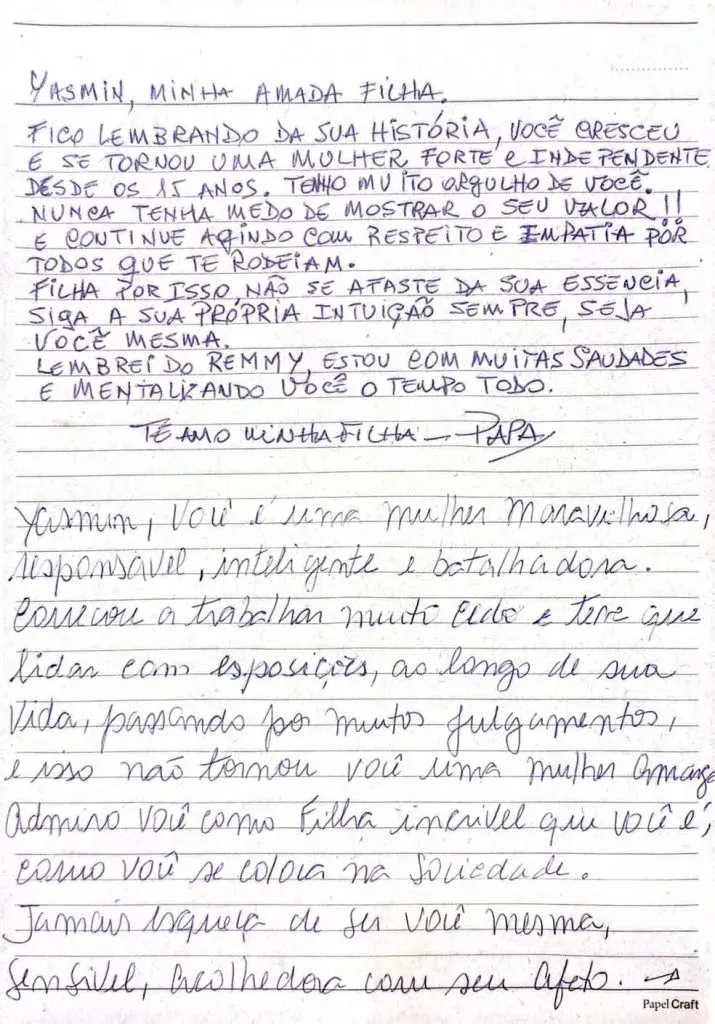 YASMIN, MINHA AMADA FILHA.
FICO LEMBRANDO DA SUA HISTÓRIA, VOCÊ CRESCEU
E SE TORNOU UMA MULHER FORTE e INDEPENDENTE
DESDE OS 15 ANOS. TENHO MUITO ORGULHO DE VOCÊ.
NUNCA TENHA MEDO DE MOSTRAR O SEU VALOR!!
E CONTINUE AGINDO COM RESPEITO E EMPATIA POR
TODOS QUE TE RODEIAM.
FILHA POR ISSO, NÃO SE AFASTE DA SUA ESSENCIA,
SIGA A SUA PRÓPRIA INTUIÇÃO SEMPRE, SEJA
VOCÊ MESMA.
LEMBREI DO REMMY, ESTOU COM MUITAS SAUDADES
E MENTALIZANDO VOCÊ O TEMPO TODO.
TE AMO MINHA FILHA - PAPA
Yasmin, você é uma mulher maravilhosa,
responsável, inteligente e batalhadora.
Começou a trabalhar muito cedo e teve que
lidar com esposições, ao longo de sua
vida, passando por muitos julgamentos,
e isso não tornou você uma mulher amarga
Admiro você como Filha incrível que você é,
como você se coloca na Sociedade.
Jamais esqueça de ser você mesma,
Sensível, acolhedora com seu afeto. →
Papel Craft